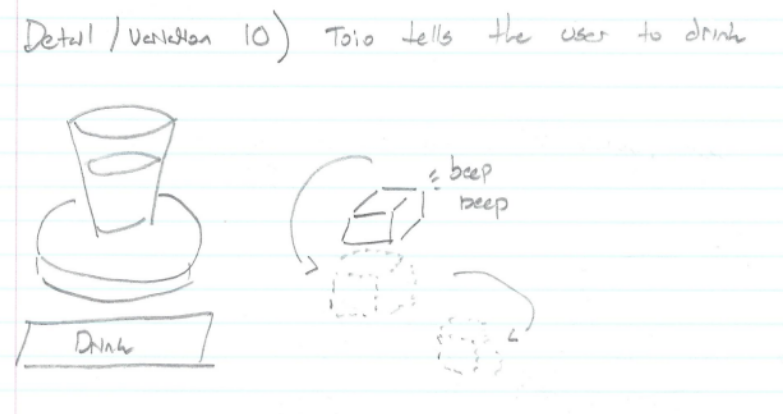 Detail / Variation 10) Toio tells the user to drink
beep
beep
Drink